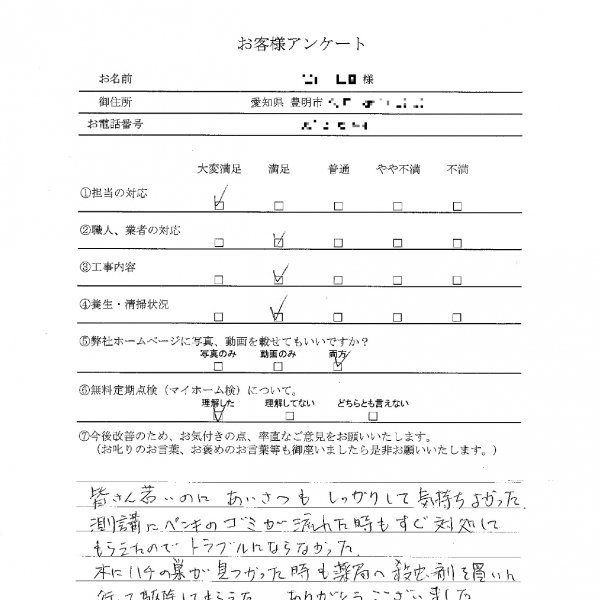 お客様アンケート
お名前 様
御住所 愛知県 豊明市
お電話番号
大変満足 満足 普通 やや不満 不満
①担当の対応
②職人、業者の対応
③工事内容
④養生・清掃状況
⑤弊社ホームページに写真、動画を載せてもいいですか？
写真のみ 動画のみ 両方
⑥無料定期点検（マイホーム検）について。
理解した 理解してない どちらとも言えない
⑦今後改善のため、お気付きの点、率直なご意見をお願いいたします。
（お叱りのお言葉、お褒めのお言葉等も御座いましたら是非お願いいたします。）
皆さん若いのに あいさつも しっかりして 気持ちよかった
測講にペンキのゴミが流れた時もすぐ対処して
もらえたのでトラブルにならなかった
木にハチの巣が見つかった時も薬局へ殺虫剤を買いに
行って駆除してもらえた ありがとうございました